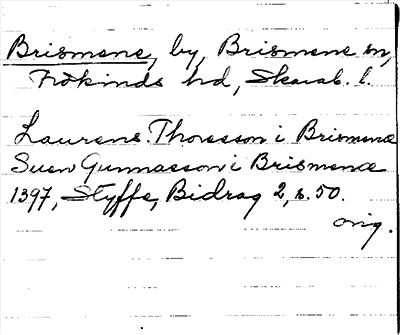 Brismene, by, Brismene sn,
Frökinds hd, Skarab. l.
Laurens Thoresson i Brismenæ
Suen Gunnasson i Brismenæ
1397, Styffe, Bidrag 2, s. 50.
orig.